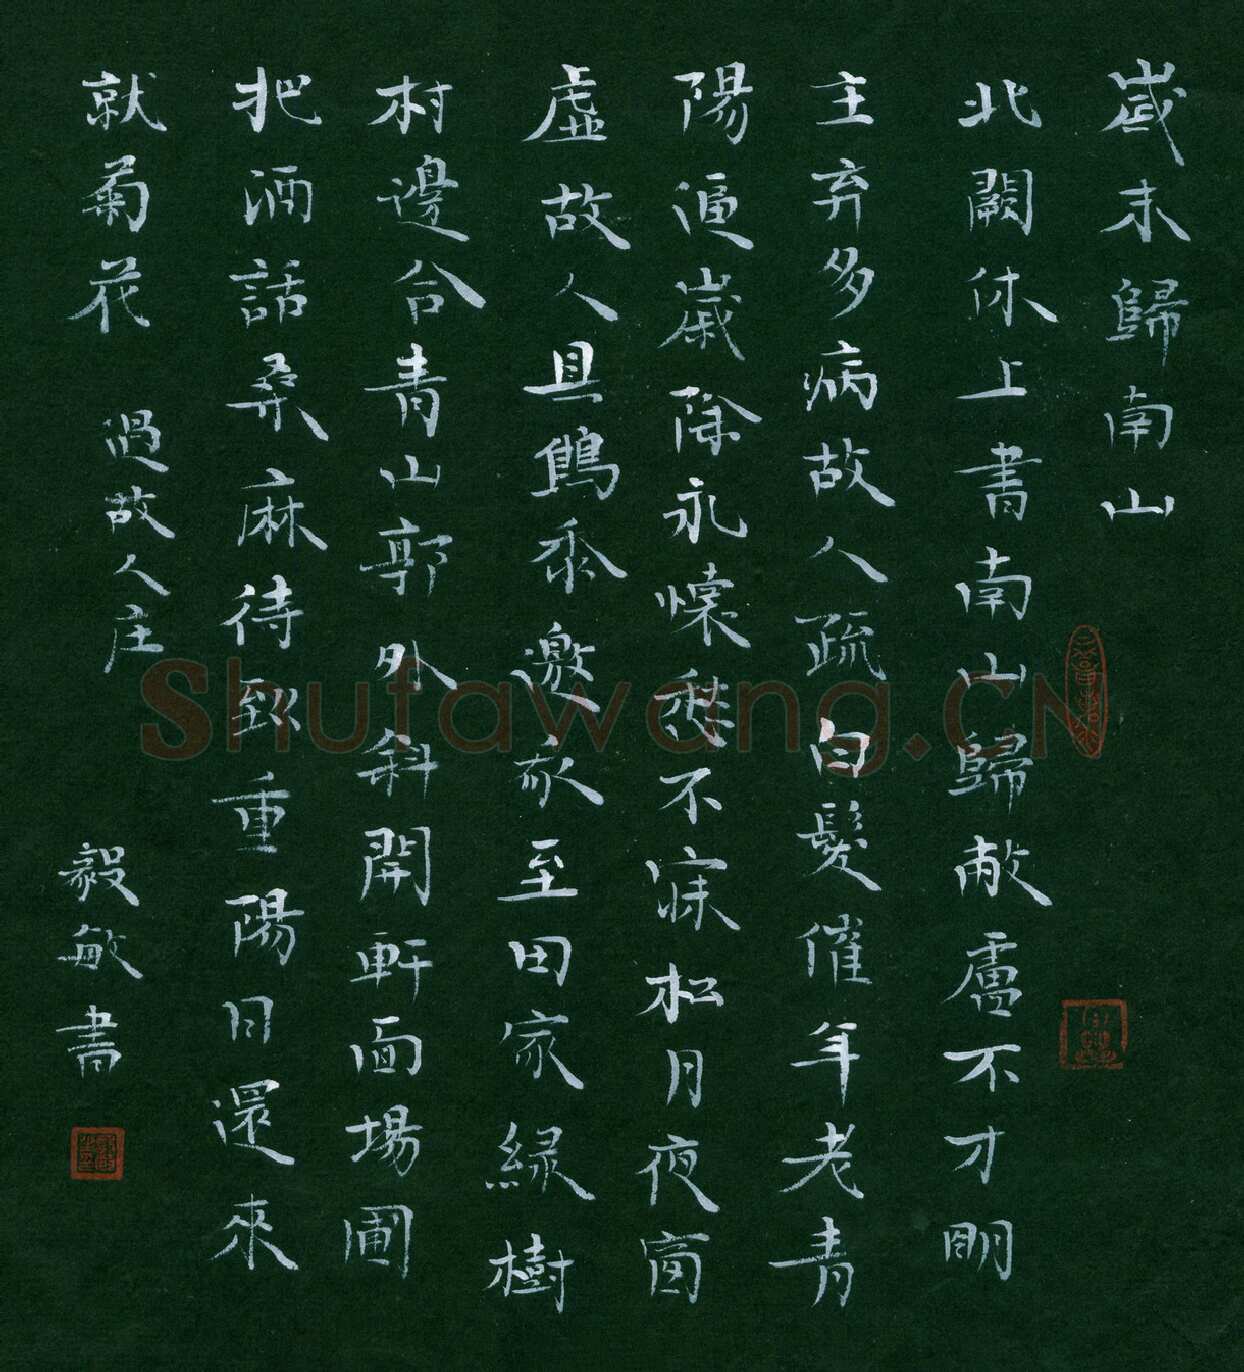 歲末歸南山
北闕休上書南山歸敝盧不才明
主弃多病故人疏白髮催年老青
陽逼歲除永懷愁不寐松月夜窗
虛故人具鷄黍邀我至田家綠樹
村邊合青山郭外斜開軒面場圃
把酒話桑麻待到重陽日還來
就菊花 過故人庄 毅敏書
Shufawang.CN